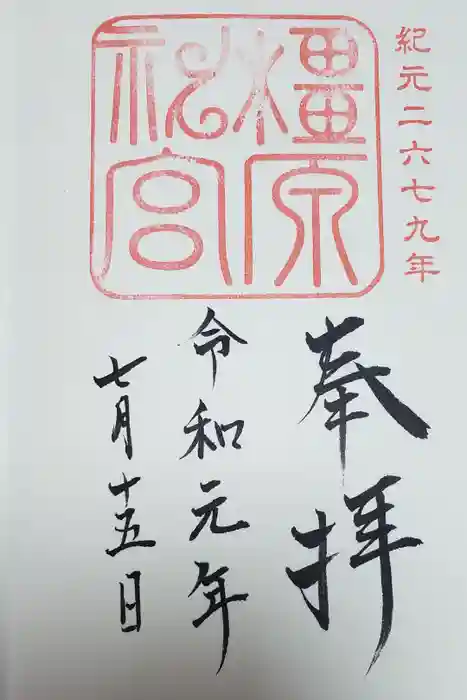 紀元二六七九年
橿原
神宮
奉拝
令和元年
七月十五日